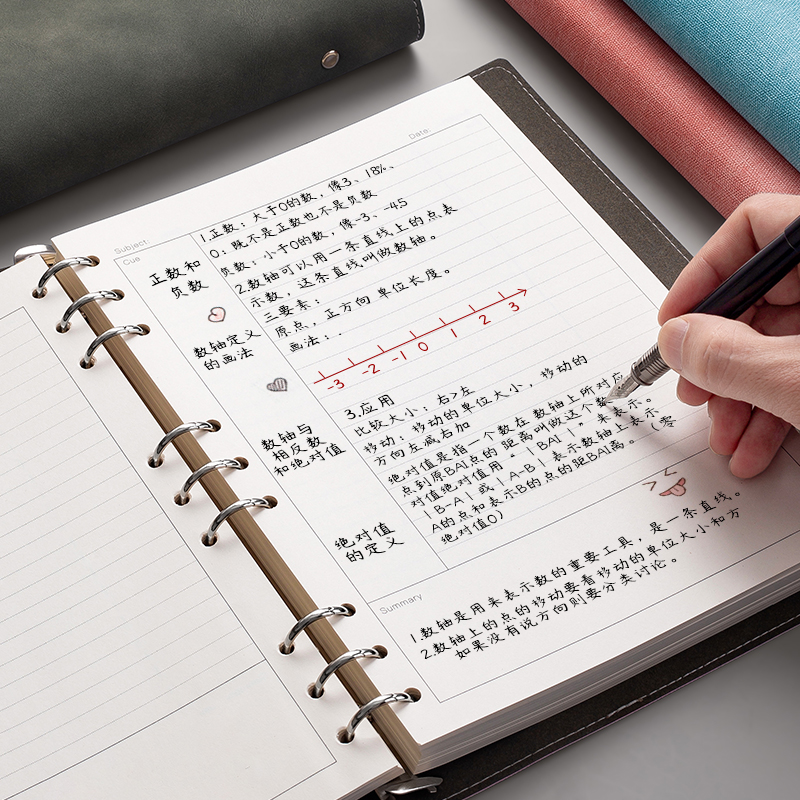 Date:
Subject:
Cue
正数和
负数
数轴定义
的画法
数轴与
相反数
和绝对值
绝对值
的定义
1.正数：大于0的数，像3、18%、
0：既不是正数也不是负数
负数：小于0的数，像-3、-45
2.数轴可以用一条直线上的点表
示数，这条直线叫做数轴。
三要素：
原点，正方向 单位长度。
画法：.
-3 -2 -1 0 1 2 3
3.应用
比较大小：右>左
移动：移动的单位大小，移动的
方向左减右加
绝对值是指一个数在数轴上所对应
点到原BA|点的距离叫做这个数
对值绝对值用“｜BA|｜”来表示。
｜B-A｜或｜A-B｜表示数轴上表示
A的点和表示B的点的距BA|离。（零
绝对值0）
Summary
1.数轴是用来表示数的重要工具，是一条直线。
2.数轴上的点的移动要看移动的单位大小和方
如果没有说方向则要分类讨论。